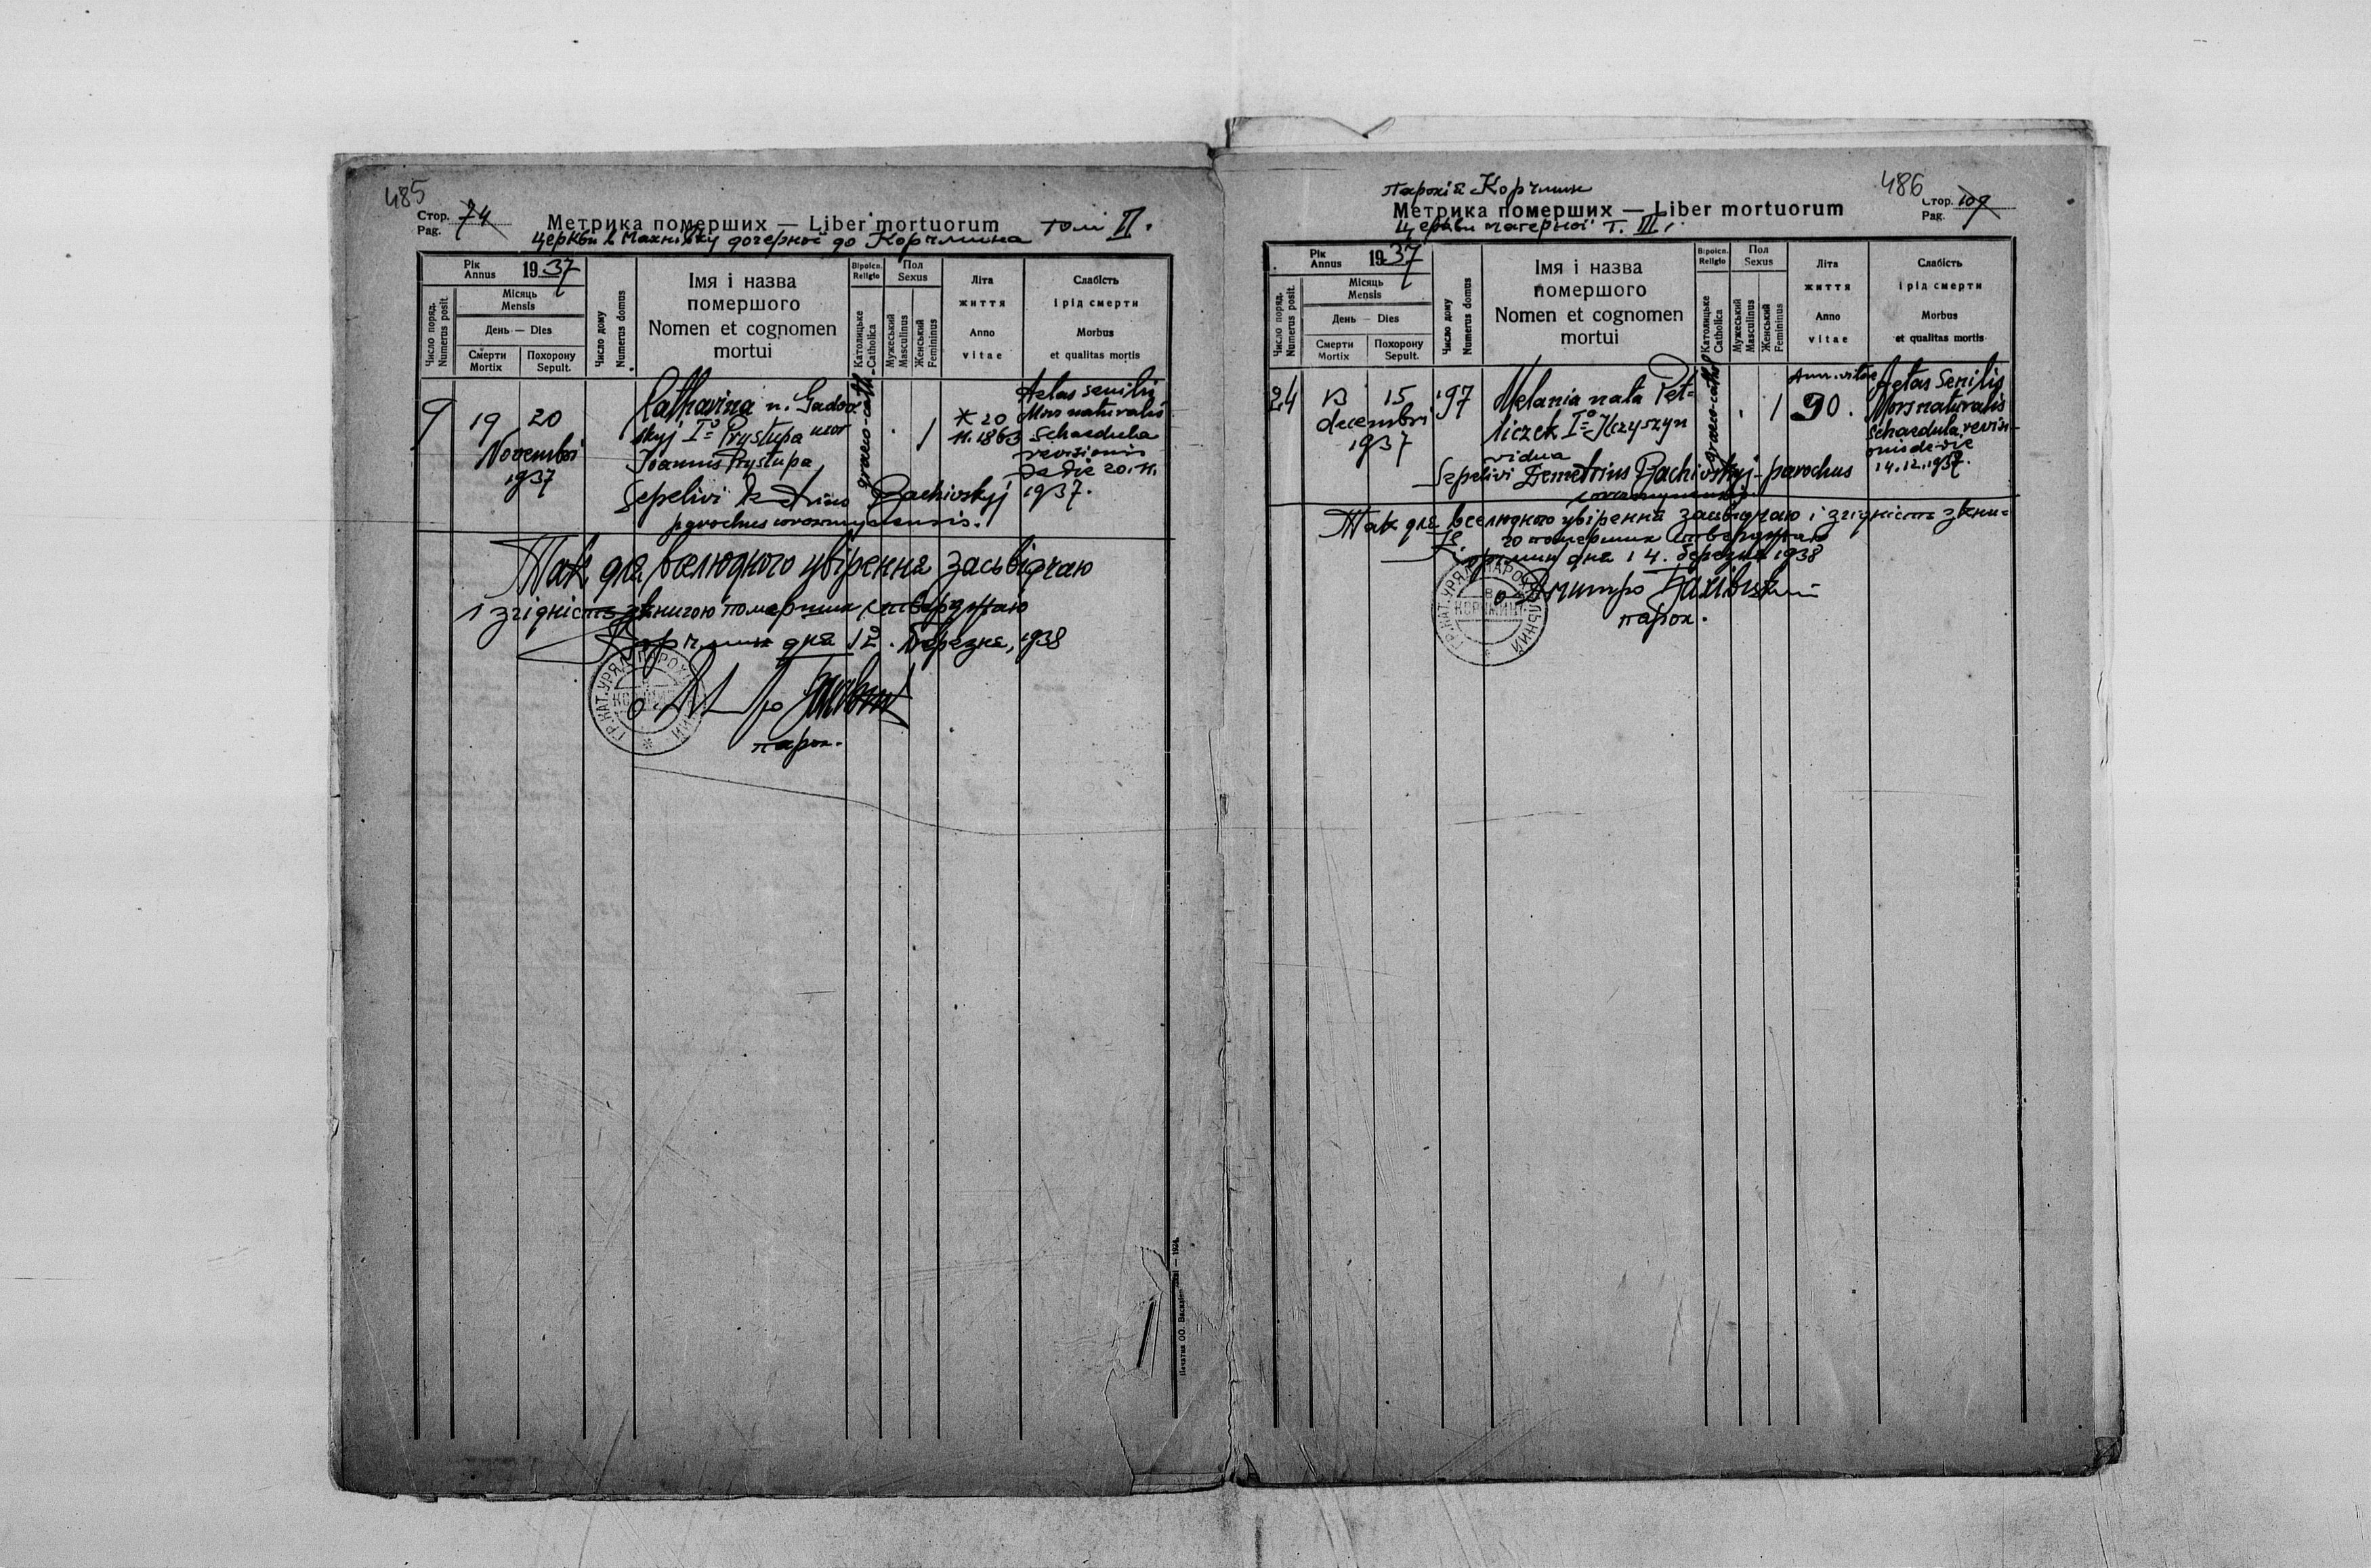 485
Стор. 74
Pag.
Метрика померших — Liber mortuorum том II.
церкви в Махнівку дочерної до Корчмина
Рік
Annus 1937
Число поряд.
Numerus posit.
Місяць
Mensis
День — Dies
Смерти
Mortix
Похорону
Sepult.
Число дому
Numerus domus
Імя і назва
помершого
Nomen et cognomen
mortui
Віроісп.
Religio
Католицьке
Catholica
Пол
Sexus
Мужеський
Masculinus
Женський
Femininus
Літа
життя
Anno
vitae
Слабість
і рід смерти
Morbus
et qualitas mortis
9
19 20
Novembri
1937
Catharina n. Gadov
skyj I° Prystupa uxor
Joannis Prystupa
graeco-cath.
1
* 20
11. 1863
Aetas senilis
Mors naturalis
Schaedula
revisionis
de die 20.11.
1937.
Sepelivi Bachivskyj
parochus
Так для вселюдного увірення засьвідчаю
і згідність з книгою померших стверджаю
Корчмин дня 12. березня, 1938
ГР.КАТ.УРЯД ПАРОХ
о.
парох.
Печатня ОО. Василіян — 1924.
486
Стор. 109
Pag.
парохія Корчмин
Метрика померших — Liber mortuorum
Церкви матерної Т. III.
Рік
Annus 1937
Число поряд.
Numerus posit.
Місяць
Mensis
День — Dies
Смерти
Mortix
Похорону
Sepult.
Число дому
Numerus domus
Імя і назва
помершого
Nomen et cognomen
mortui
Віроісп.
Religio
Католицьке
Catholica
Пол
Sexus
Мужеський
Masculinus
Женський
Femininus
Літа
життя
Anno
vitae
Слабість
і рід смерти
Morbus
et qualitas mortis
24
13 15
decembri
1937
97
Melania nata Pet-
liczek I° Hryszyn
vidua
graeco-cath.
1
Ann. vitae
90.
Aetas Senilis
Mors naturalis
Schaedula revisi
onis de die
14.12.1937.
Sepelivi Demetrius Bachivskyj - parochus
Так для вселюдного увірення засвідчаю і згідність з кни-
го померших стверджаю
Корчмин дня 14. березня 1938
ГР.КАТ.УРЯД ПАРОХІЯЛЬНИЙ
В
КОРЧМИНІ
о. Дмитро Бахівський
парох.